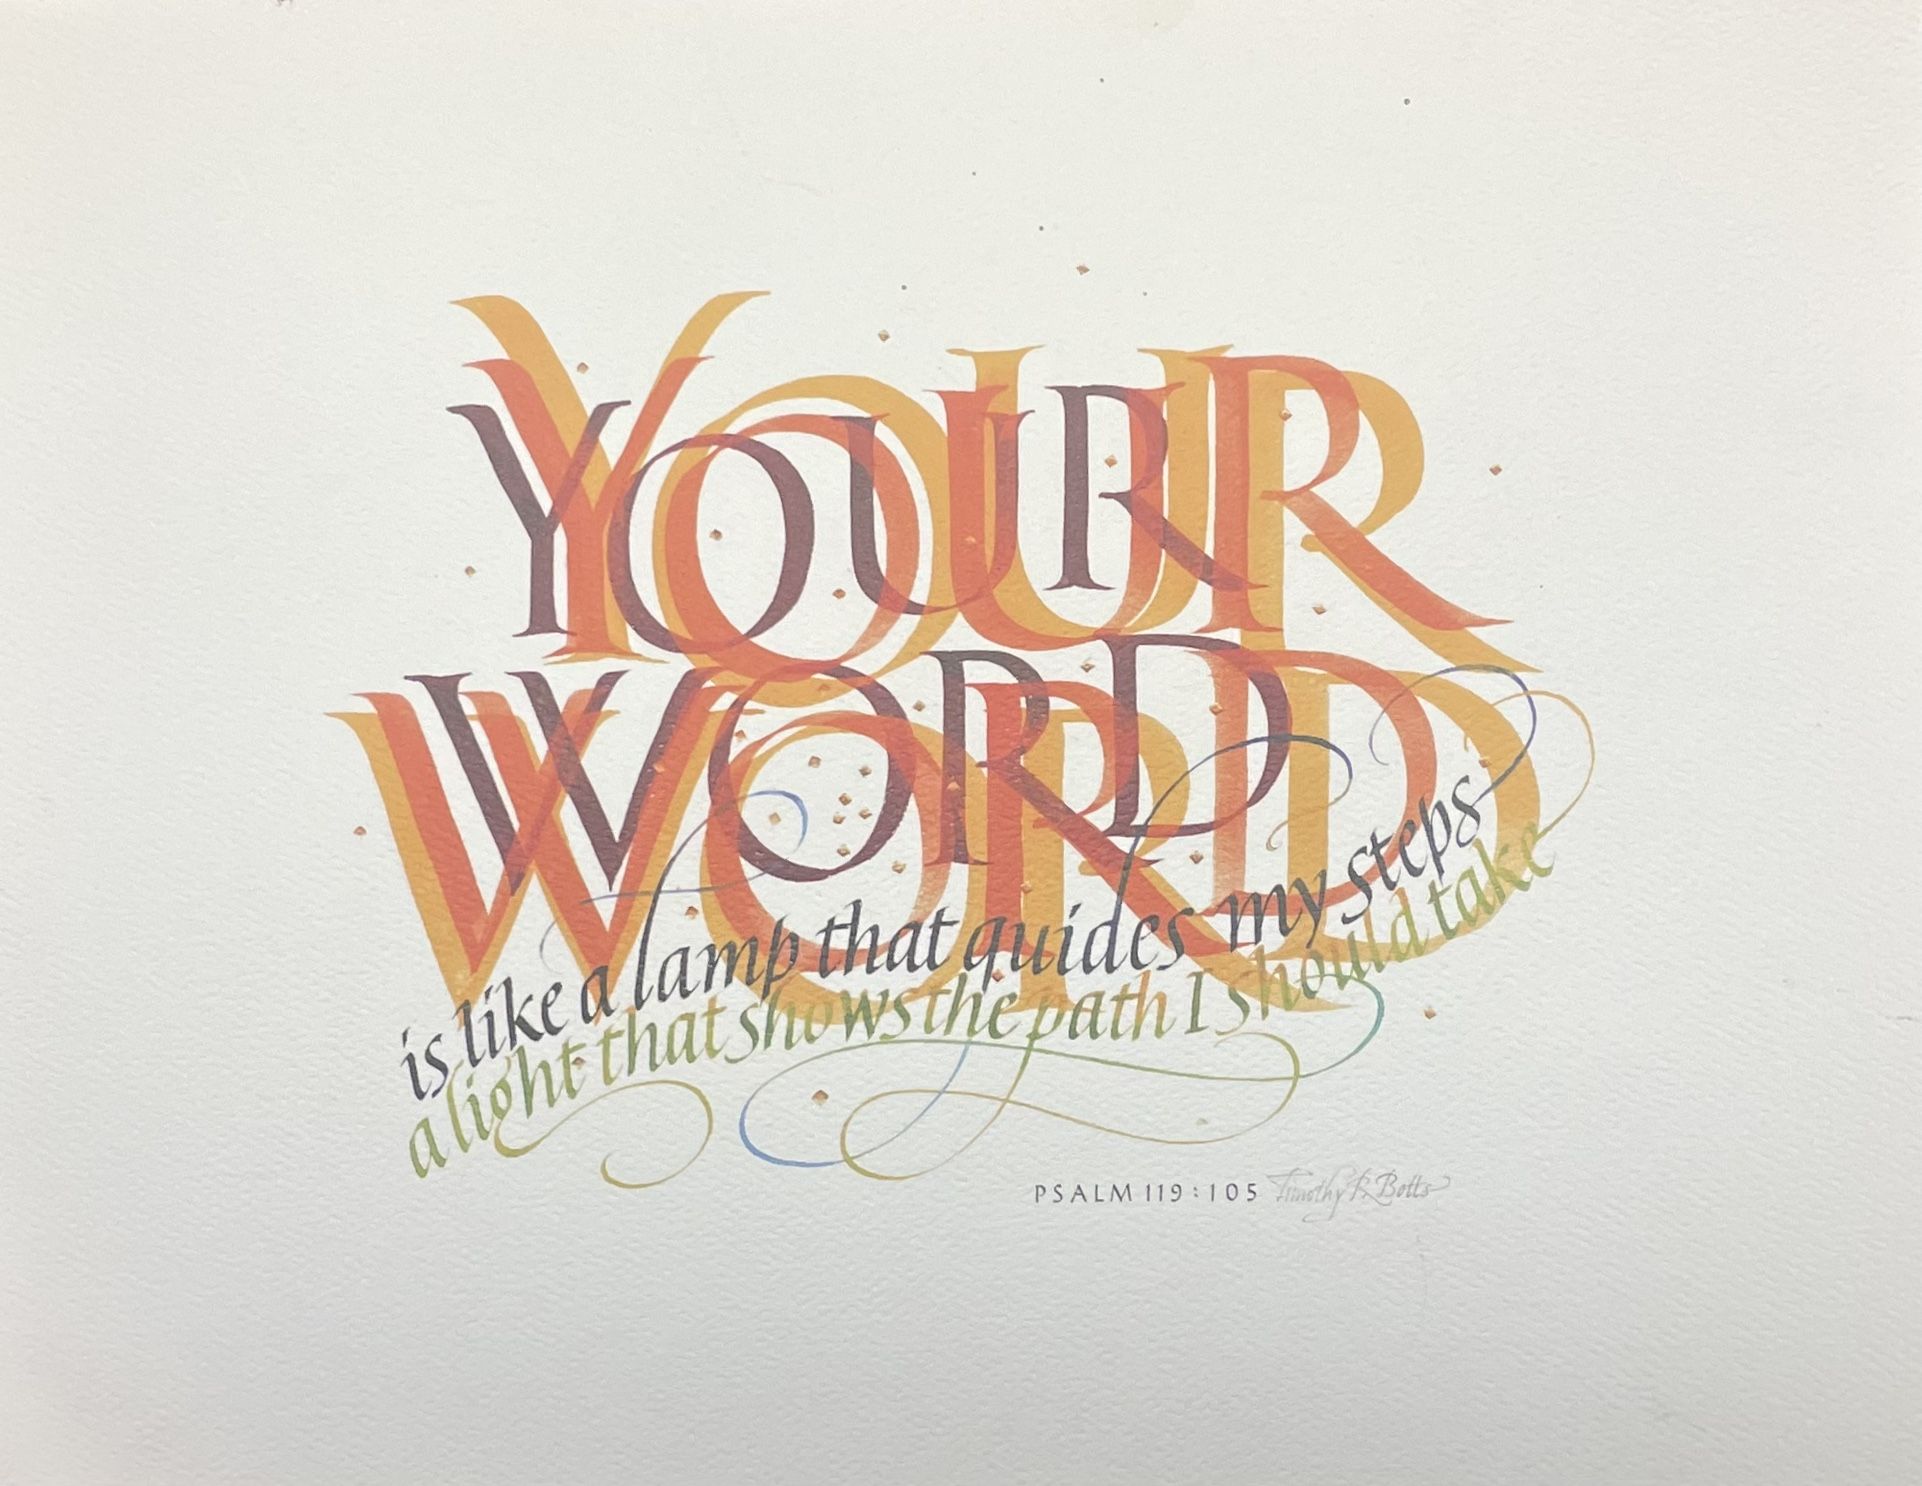 YOUR
WORD
is like a lamp that guides my steps
a light that shows the path I should take
PSALM 119:105 Timothy R. Botts